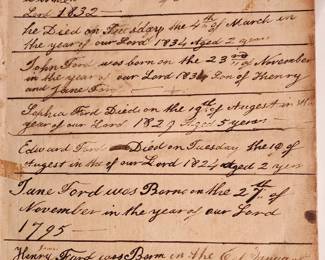 Lord 1832
he Died on Tuesday the 4th of March in
the year of our Lord 1834 Aged 2 years
John Ford was born on the 23rd of November
in the year of our Lord 183 Son of Henry
and Jane Ford
Sophia Ford Died on the 19th of Augest in the
year of our Lord 1827 Aged 5 years
Edward Ford Died on Tuesday the 19 of
Augest in the of our Lord 1824 Aged 2 years
Jane Ford was Borne on the 27th of
November in the year of our Lord
1795
Henry Ford was Born on the